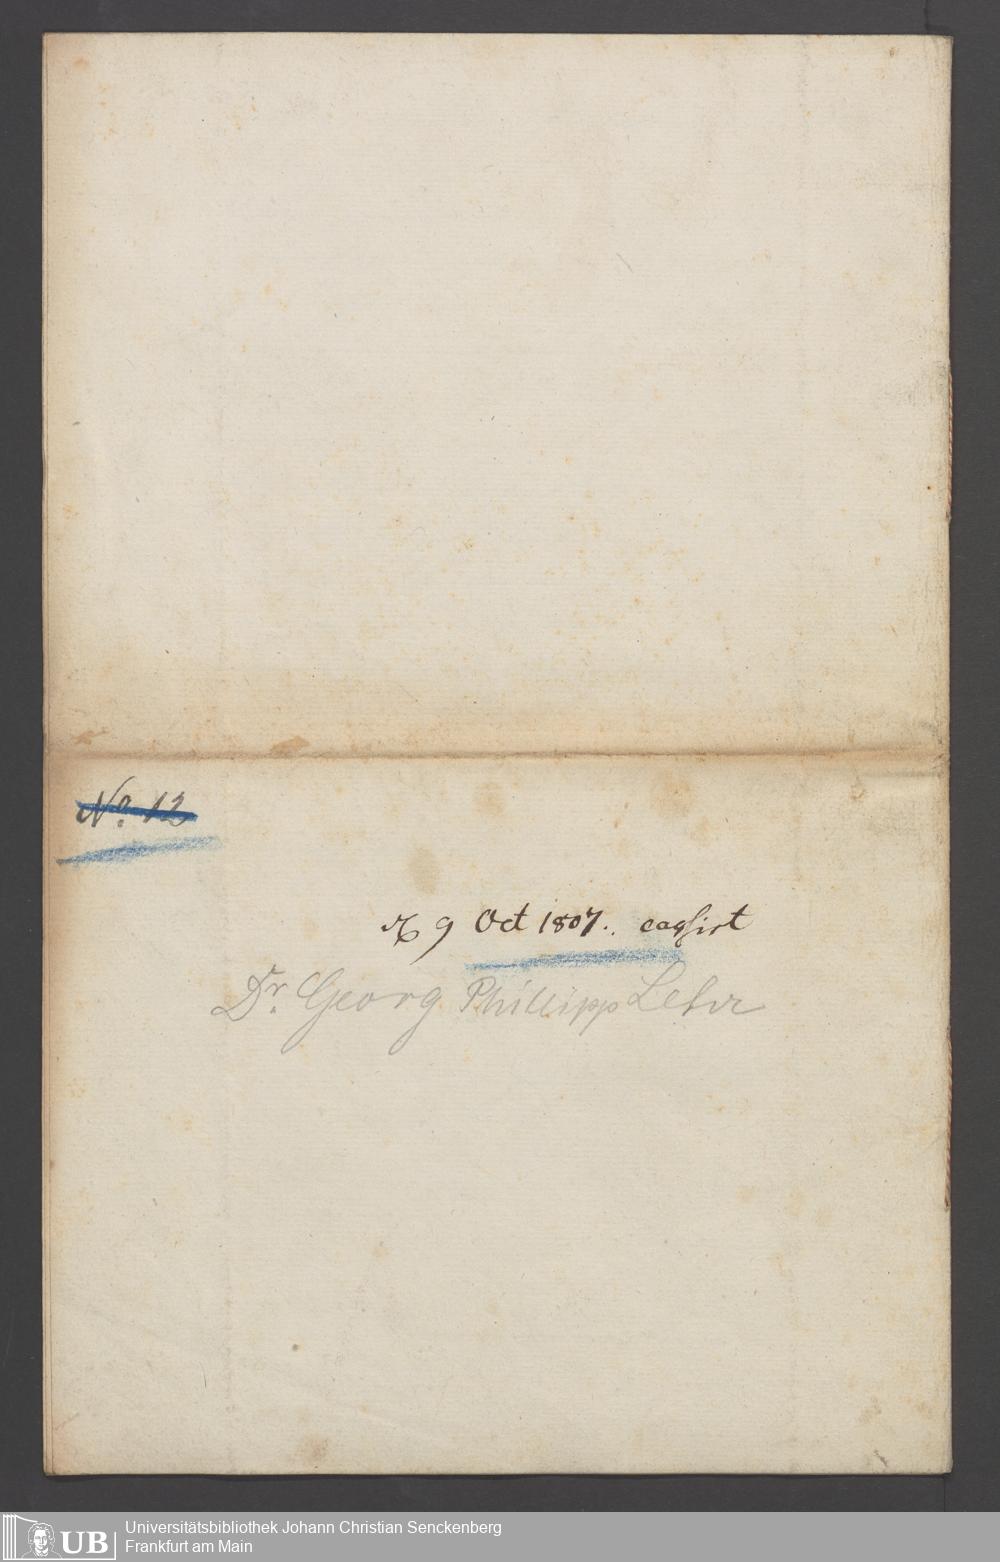 No. 12
9 Oct 1807. cassirt
Dr. Georg Phillipp Lehr
UB
Universitätsbibliothek Johann Christian Senckenberg
Frankfurt am Main